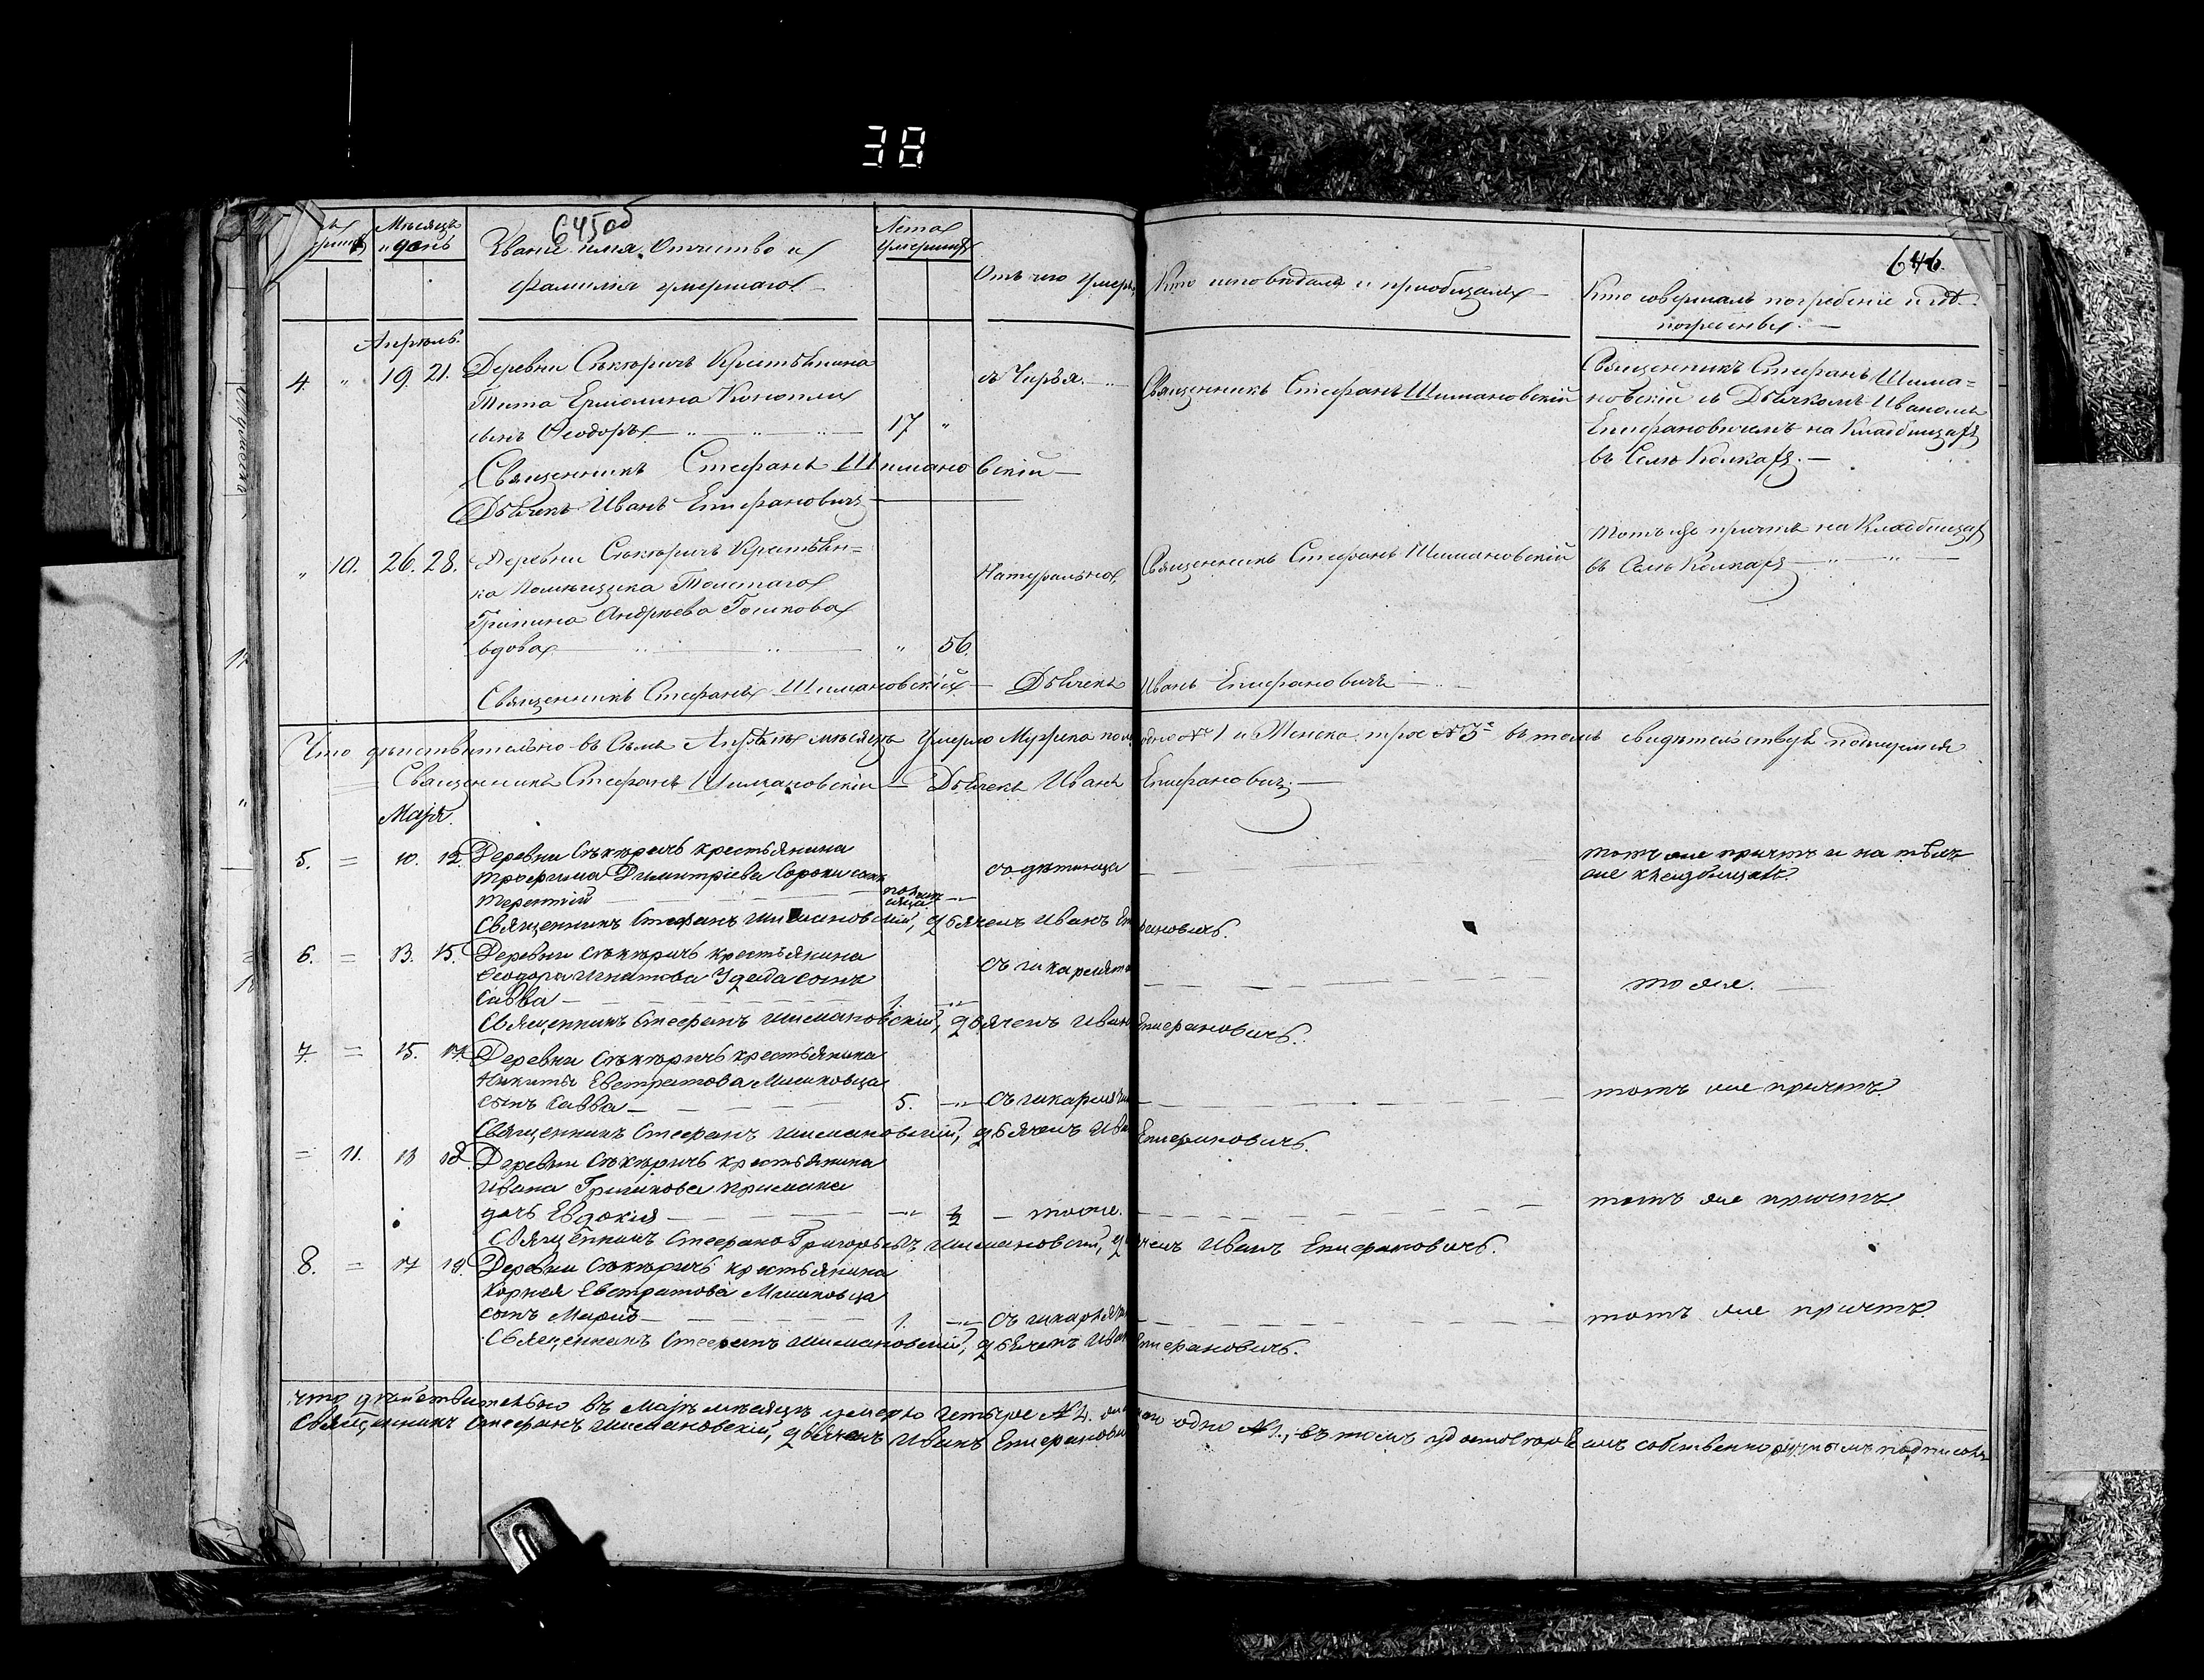 38
645об
646.
Мѣсяцъ
и день
Званіе имя, Отчество и
фамилія умершаго.
Лета
умершихъ
Отъ чего умеръ
Кто исповѣдалъ и приобщалъ
Кто совершалъ погребеніе и гдѣ
погребены.
Апрѣль.
4. " 19. 21. Деревни Сѣкѣричь Крестьянина
Тита Ермолина Конопли
сынъ Ѳеодоръ 17 "
съ Чирья.
Священникъ Стефанъ Шимановскій
Священникъ Стефанъ Шима=
новскій съ Дьячкомъ Иваномъ
Епифановичемъ на Кладбищахъ
въ Селѣ Колкахъ.
Священникъ Стефанъ Шимановскій
Дьячекъ Иванъ Епифановичъ
" 10. 26. 28. Деревни Сѣкѣричь Крестьян=
ка Помѣщика Толстаго
Грипина Андрѣева Гошкова
вдова " 56.
Натурально
Священникъ Стефанъ Шимановскій
Тотъ же причтъ на Кладбищахъ
въ Селѣ Колкахъ
Священникъ Стефанъ Шимановскій Дьячекъ Иванъ Епифановичъ
Что дѣйствительно въ Семъ Апрѣлѣ мѣсяцѣ Умерло Мужеска пола одно № 1 и Женска трое № 3 въ томъ свидѣтельствуя подпишемся
Священникъ Стефанъ Шимановскій Дьячекъ Иванъ Епифановичъ
Маія.
5. = 10. 12. Деревни Сѣкѣричь крестьянина
Трофима Димитріева Сороки сынъ
Терентій
отъ родимца
тотъ же причтъ и на тѣхъ
же кладбищахъ.
Священникъ Стефанъ Шимановскій, дьячекъ Иванъ Епифановичъ.
6. = 13. 15. Деревни Сѣкѣричь крестьянина
Ѳеодора Игнатова сынъ
Савва 1.
тоже.
Священникъ Стефанъ Шимановскій, дьячекъ Иванъ Епифановичъ.
7. = 15. 17. Деревни Сѣкѣричь крестьянина
Никиты Евстратова Мишковца
сынъ Савва 5.
тотъ же причтъ.
Священникъ Стефанъ Шимановскій, дьячекъ Иванъ Епифановичъ.
= 11. 18. Деревни Сѣкѣричь крестьянина
Ивана
дочь Евдокія ½ тоже.
тотъ же причтъ
Священникъ Стефанъ Григорьевъ Шимановскій, дьячекъ Иванъ Епифановичъ.
8. = 17 19. Деревни Сѣкѣричь крестьянина
Корнея Евстратова Мишковца
сынъ 1.
тотъ же причтъ
Священникъ Стефанъ Шимановскій, дьячекъ Иванъ Епифановичъ.
Что дѣйствительно въ Маіѣ мѣсяцѣ умерло четыре № 4. одно №1., въ томъ удостовѣряемъ собственноручнымъ подписомъ
Священникъ Стефанъ Шимановскій, дьячекъ Иванъ Епифановичъ